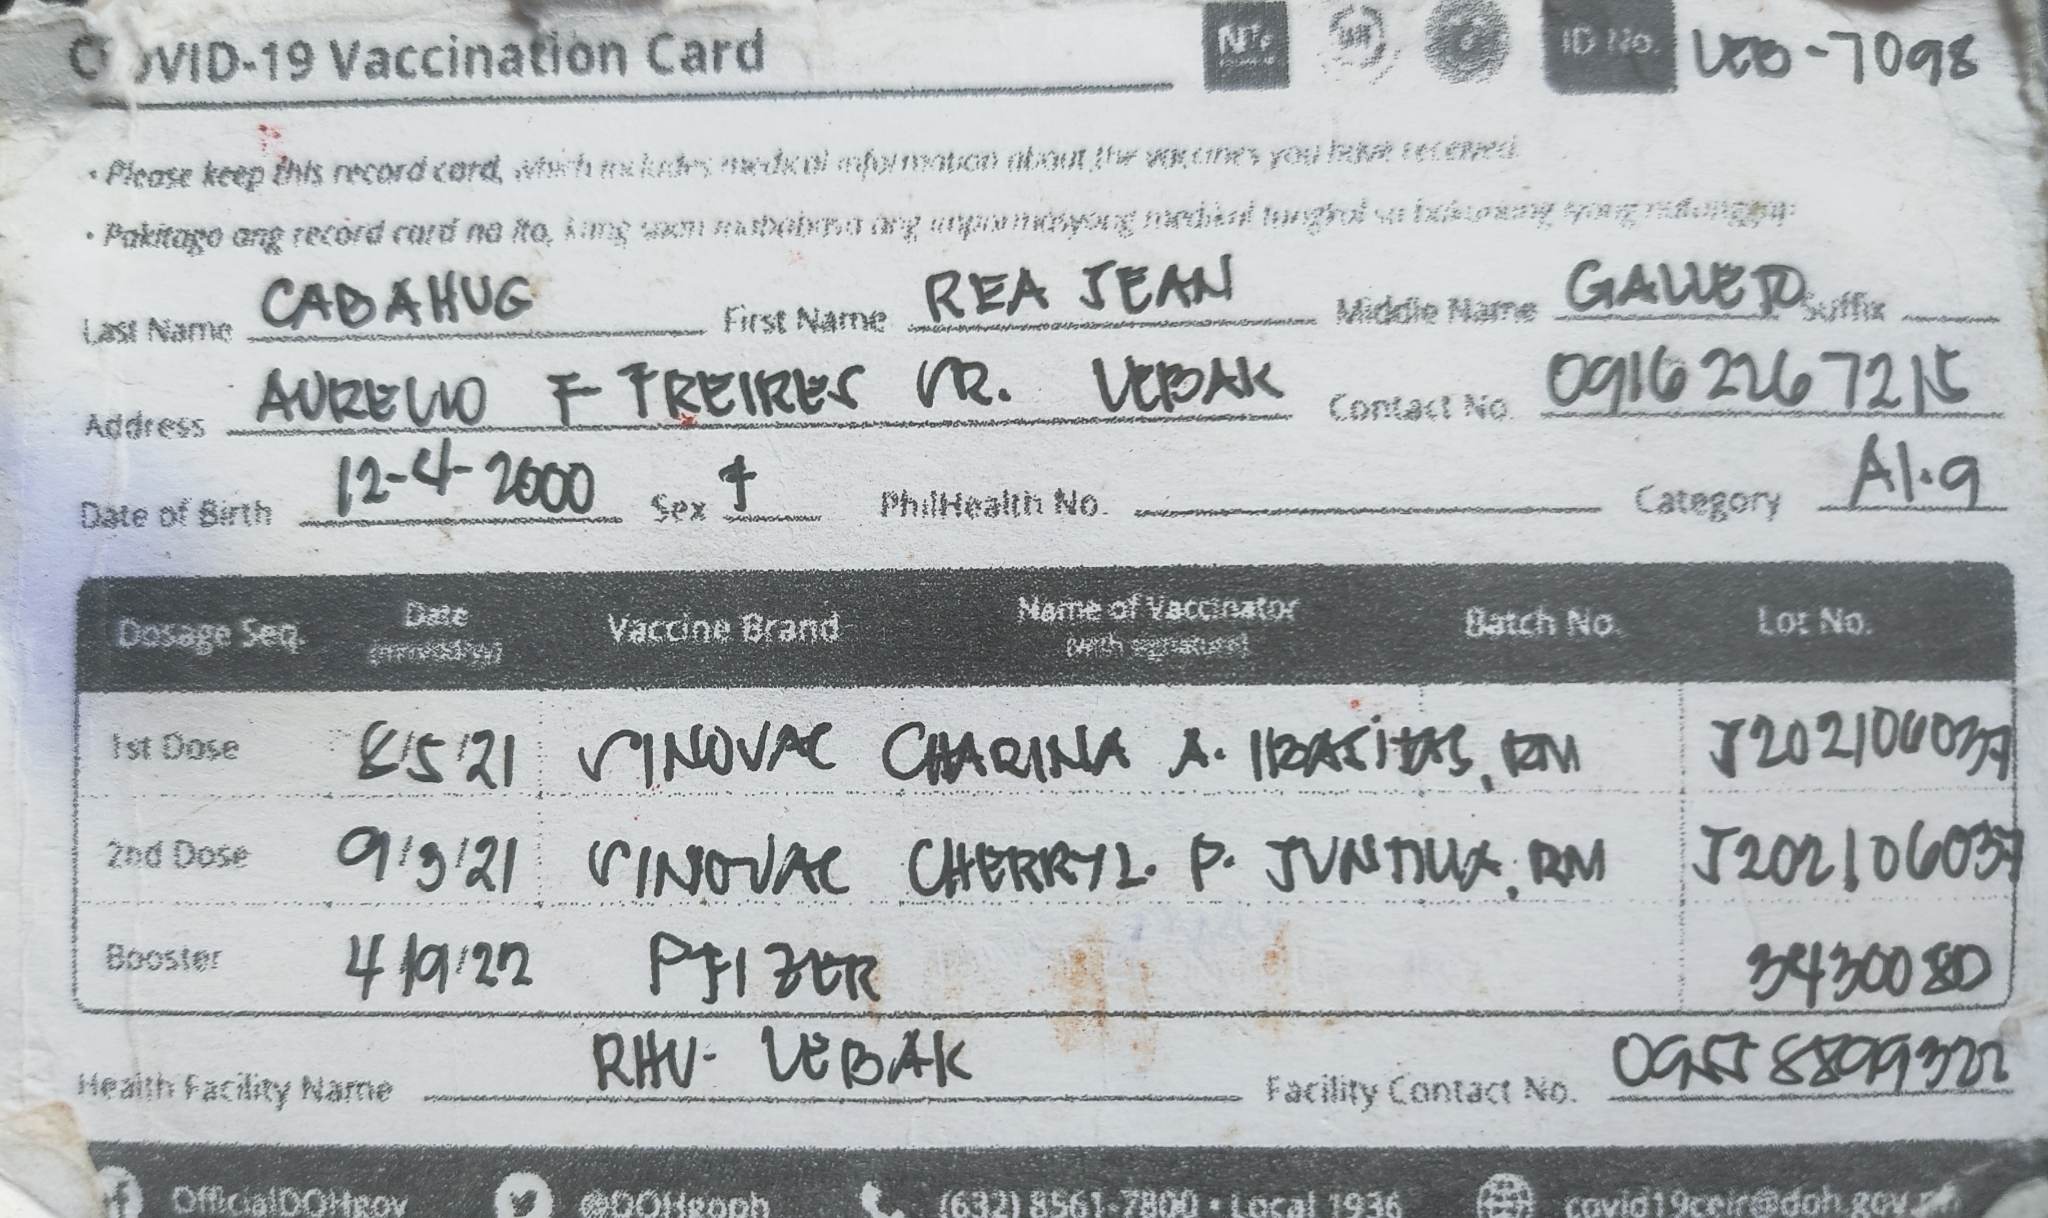 COVID-19 Vaccination Card ID No. LEB-7098
• Please keep this record card, which includes medical information about the vaccines you have received.
• Pakitago ang record card na ito, kung saan mababasa ang impormasyong medikal tungkol sa bakunang iyong natanggap.
Last Name CABAHUG First Name REA JEAN Middle Name GALLEJO Suffix
Address AURELIO F FREIRES SR. LEBAK Contact No. 09162267215
Date of Birth 12-4-2000 Sex F PhilHealth No. Category A1.9
Dosage Seq. Date (mm/dd/yy) Vaccine Brand Name of Vaccinator (with signature) Batch No. Lot No.
1st Dose 8/5/21 SINOVAC CHARINA A. RM J202106037
2nd Dose 9/3/21 SINOVAC CHERRYL P. RM J202106037
Booster 4/9/22 PFIZER 343008D
Health Facility Name RHU-LEBAK Facility Contact No.
OfficialDOHgov @DOHgovph (632) 8561-7800 • Local 1936 covid19ceir@doh.gov.ph